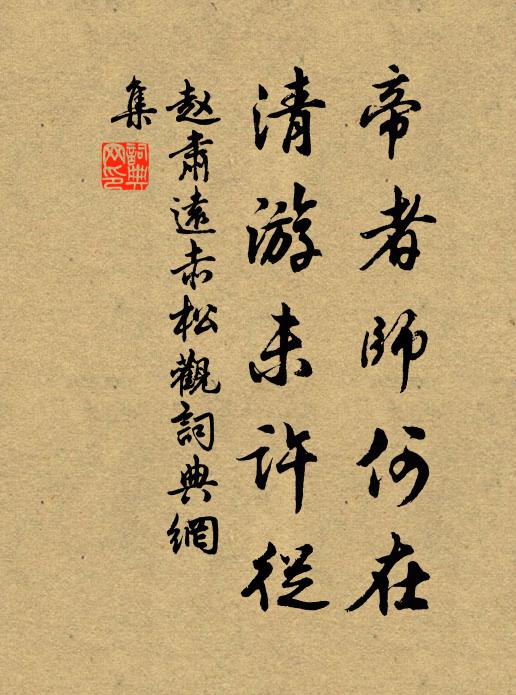 帝者師何在
清游未許從
趙肅遠赤松觀詞典網
集
詞典網印